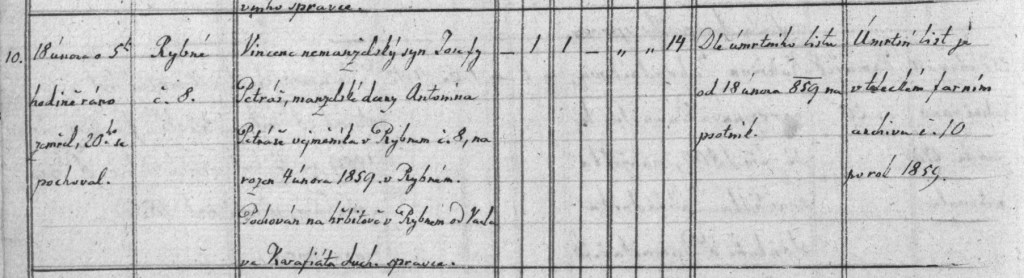 vního správce.
10. 18 února o 5té Rybné Vincenc nemanželský syn Josefy — 1 1 — „ „ 14 Dle úmrtního listu Úmrtní list je
hodině ráno č. 8. Petráš, manželské dcery Antonína od 18 února 859 na v tkeckém farním
zemřel, 20ho se Petráše vejměníka v Rybném č. 8, na psotník. archivu č. 10
pochoval. rozen 4 února 1859. v Rybném. po rok 1859.
Pochován na hřbitově v Rybném od Vacla
va Karafiáta duch. správce.